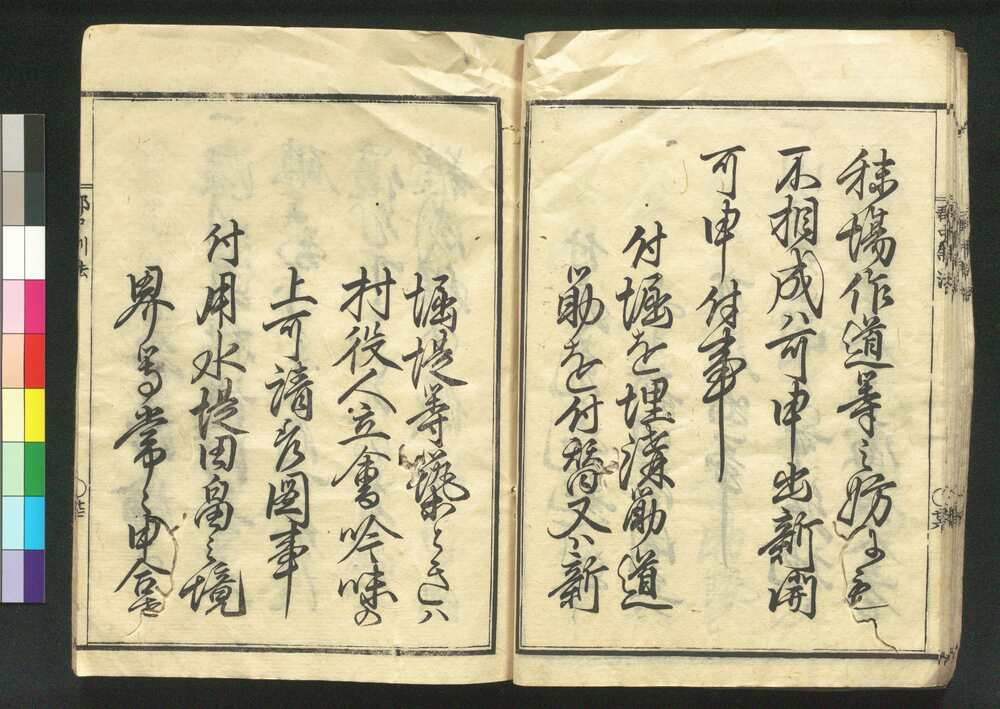 秣場作道等之妨にも
不相成ハ可申出新開
可申付事
付堀を埋溝筋道
筋を付替又ハ新
堀堤等築ときハ
村役人立會吟味の
上可請差圖事
付用水堤田畠之境
界等常々申合